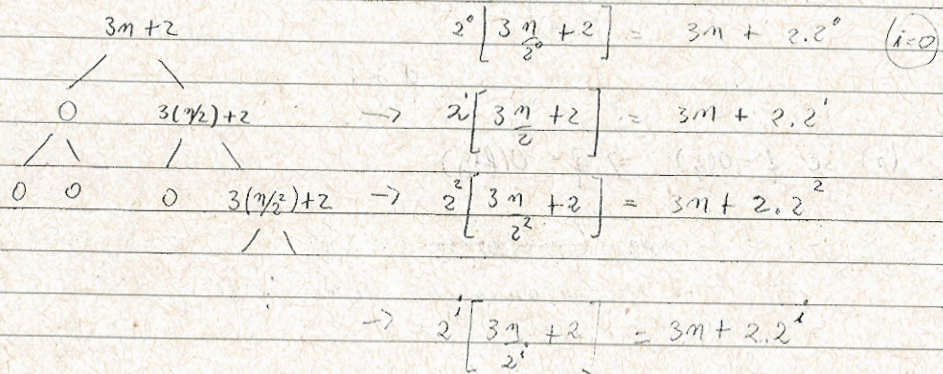 3n + 2 2⁰ [ 3 n/2⁰ + 2 ] = 3n + 2.2⁰ (i=0)
0 3(n/2) + 2 → 2¹ [ 3 n/2 + 2 ] = 3n + 2.2¹
0 0 0 3(n/2²) + 2 → 2² [ 3n/2² + 2 ] = 3n + 2.2²
⋮
→ 2ⁱ [ 3n/2ⁱ + 2 ] = 3n + 2.2ⁱ